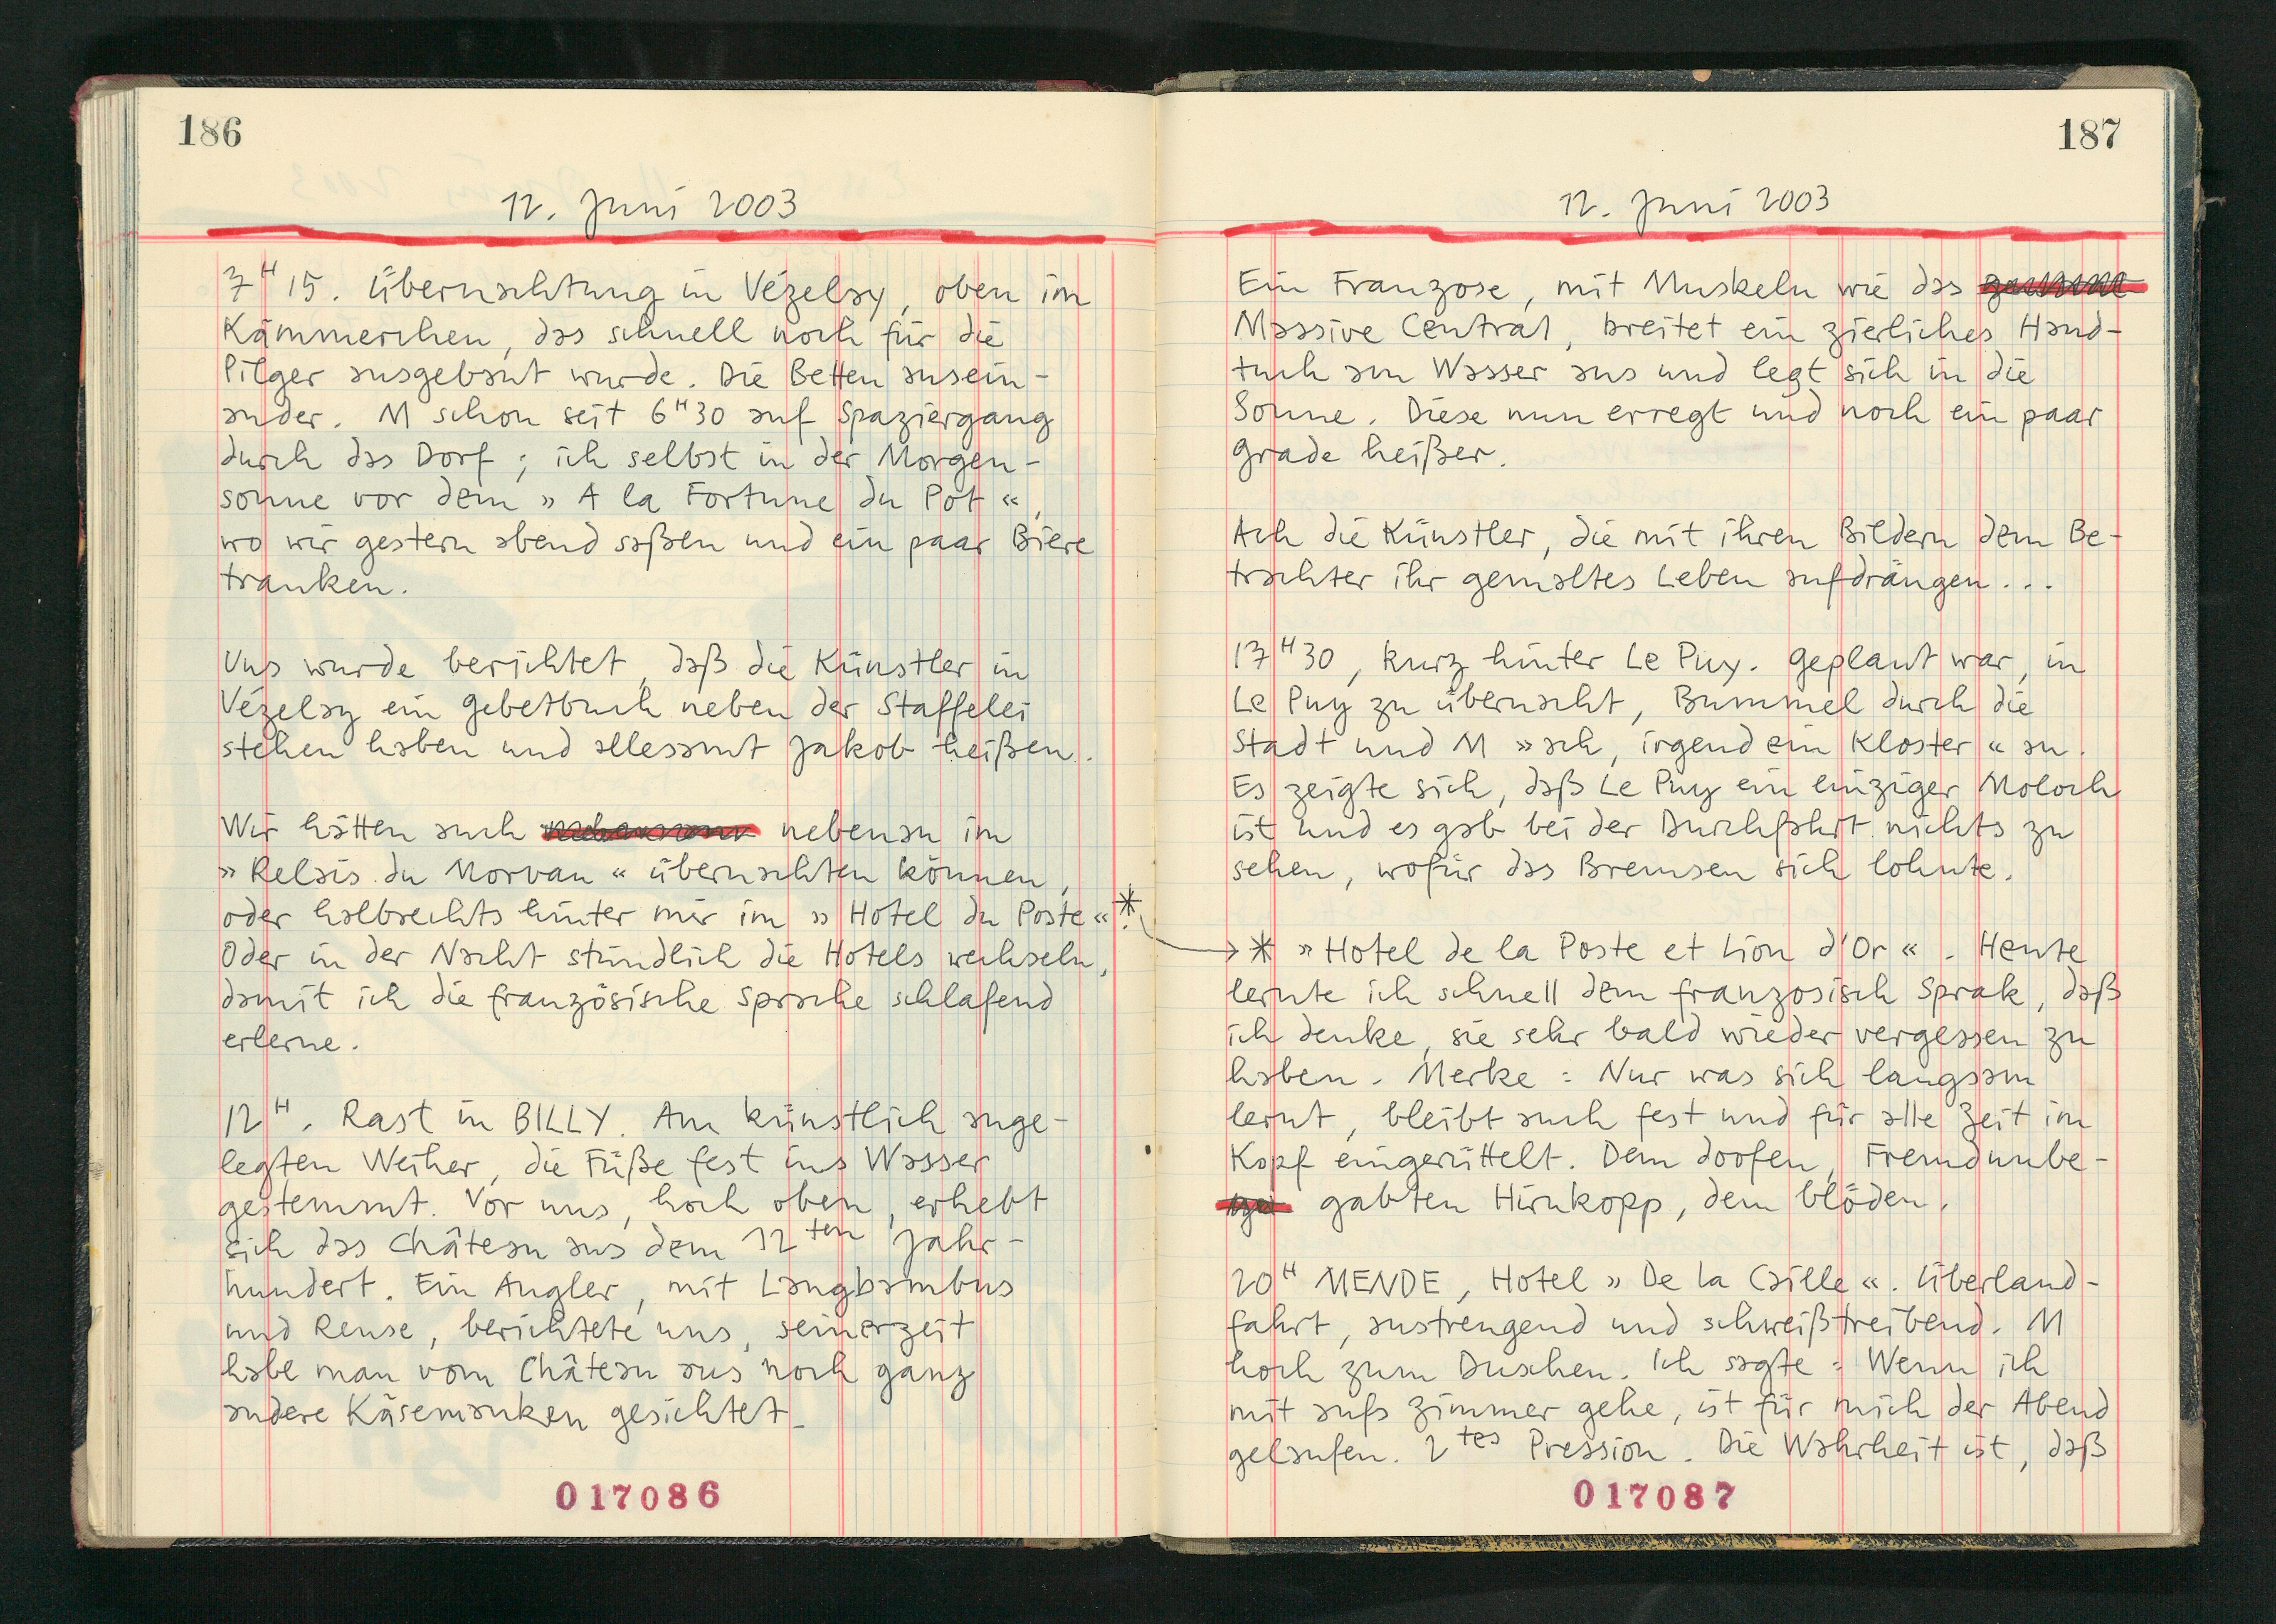 186
12. Juni 2003
7 H 15. Übernachtung in Vézelay, oben im
Kämmerchen, das schnell noch für die
Pilger ausgebaut wurde. Die Betten ausein-
ander. M schon seit 6 H 30 auf Spaziergang
durch das Dorf; ich selbst in der Morgen-
sonne vor dem » A la Fortune du Pot «,
wo wir gestern abend saßen und ein paar Biere
tranken.
Uns wurde berichtet, daß die Künstler in
Vézelay ein Gebetbuch neben der Staffelei
stehen haben und allesamt Jakob heißen.
Wir hätten auch nebenan im
» Relais du Morvan « übernachten können,
oder halbrechts hinter mir im » Hotel du Poste «*.
Oder in der Nacht stündlich die Hotels wechseln,
damit ich die französische Sprache schlafend
erlerne.
12 H. Rast in BILLY. Am künstlich ange-
legten Weiher, die Füße fest ins Wasser
gestemmt. Vor uns, hoch oben, erhebt
sich das Château aus dem 12ten Jahr-
hundert. Ein Angler, mit Langbambus
und Reuse, berichtete uns, seinerzeit
habe man vom Château aus noch ganz
andere Käsemauken gesichtet.
017086
187
12. Juni 2003
Ein Franzose, mit Muskeln wie das
Massive Central, breitet ein zierliches Hand-
tuch am Wasser aus und legt sich in die
Sonne. Diese nun erregt und noch ein paar
Grade heißer.
Ach die Künstler, die mit ihren Bildern dem Be-
trachter ihr gemaltes Leben aufdrängen...
17 H 30, kurz hinter Le Puy. Geplant war, in
Le Puy zu übernacht, Bummel durch die
Stadt und M » ach, irgend ein Kloster « an.
Es zeigte sich, daß Le Puy ein einziger Moloch
ist und es gab bei der Durchfahrt nichts zu
sehen, wofür das Bremsen sich lohnte.
* » Hotel de la Poste et Lion d'Or «. Heute
lernte ich schnell dem franzosisch Sprak, daß
ich denke, sie sehr bald wieder vergessen zu
haben. Merke: Nur was sich langsam
lernt, bleibt auch fest und für alle Zeit im
Kopf eingerüttelt. Dem doofen, Fremdunbe-
gabten Hirnkopp, dem blöden.
20 H MENDE, Hotel » De la Caille «. Überland-
fahrt, anstrengend und schweißtreibend. M
hoch zum Duschen. Ich sagte: Wenn ich
mit aufs Zimmer gehe, ist für mich der Abend
gelaufen. 2tes Pression. Die Wahrheit ist, daß
017087